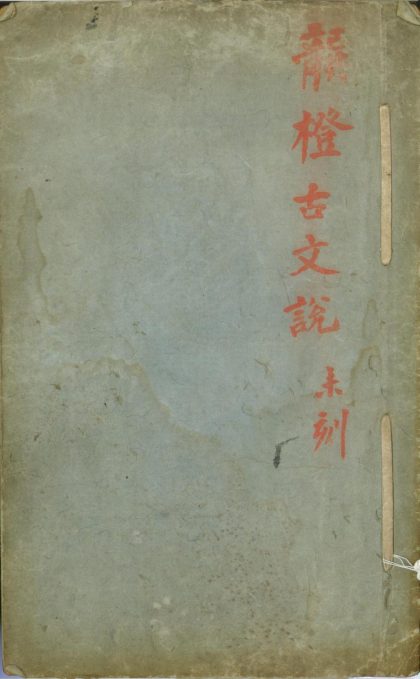 龔橙古文說
未刻